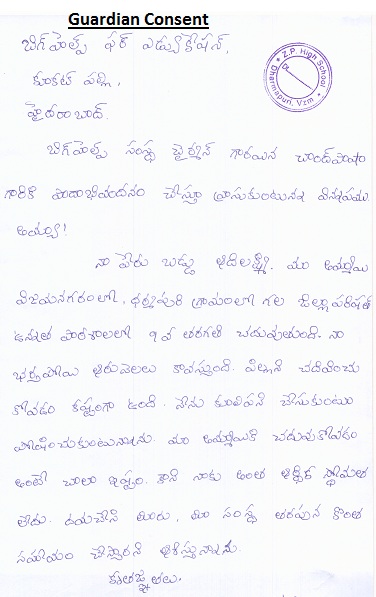 Guardian Consent
బిగ్ హెల్ప్ ఫర్ ఎడ్యుకేషన్,
Z.P. High School
Dharmapuri, Vzm
కూకట్ పల్లి,
హైదరాబాద్.
బిగ్ హెల్ప్ సంస్థ చైర్మన్ గారయిన చాంద్ పాషా
గారికి పాదాభివందనం చేస్తూ వ్రాసుకుంటున్న విన్నపము
అయ్యా!
నా పేరు బడ్డు ఆదిలక్ష్మి. మా అమ్మాయి
విజయనగరంలో, ధర్మపురి గ్రామంలో గల జిల్లా పరిషత్
ఉన్నత పాఠశాలలో 9 వ తరగతి చదువుతుంది. నా
భర్త పోయి ఆరునెలలు కావస్తుంది. పిల్లని చదివించు
కోవడం కష్టంగా ఉంది. నేను కూలిపని చేసుకుంటు
పోషించుకుంటున్నాను. మా అమ్మాయికి చదువుకోవడం
అంటే చాలా ఇష్టం. కాని నాకు అంత ఆర్థిక స్థోమత
లేదు. దయచేసి మీరు, మీ సంస్థ తరపున కొంత
సహాయం చేస్తారని ఆశిస్తున్నాను.
కృతజ్ఞతలు.